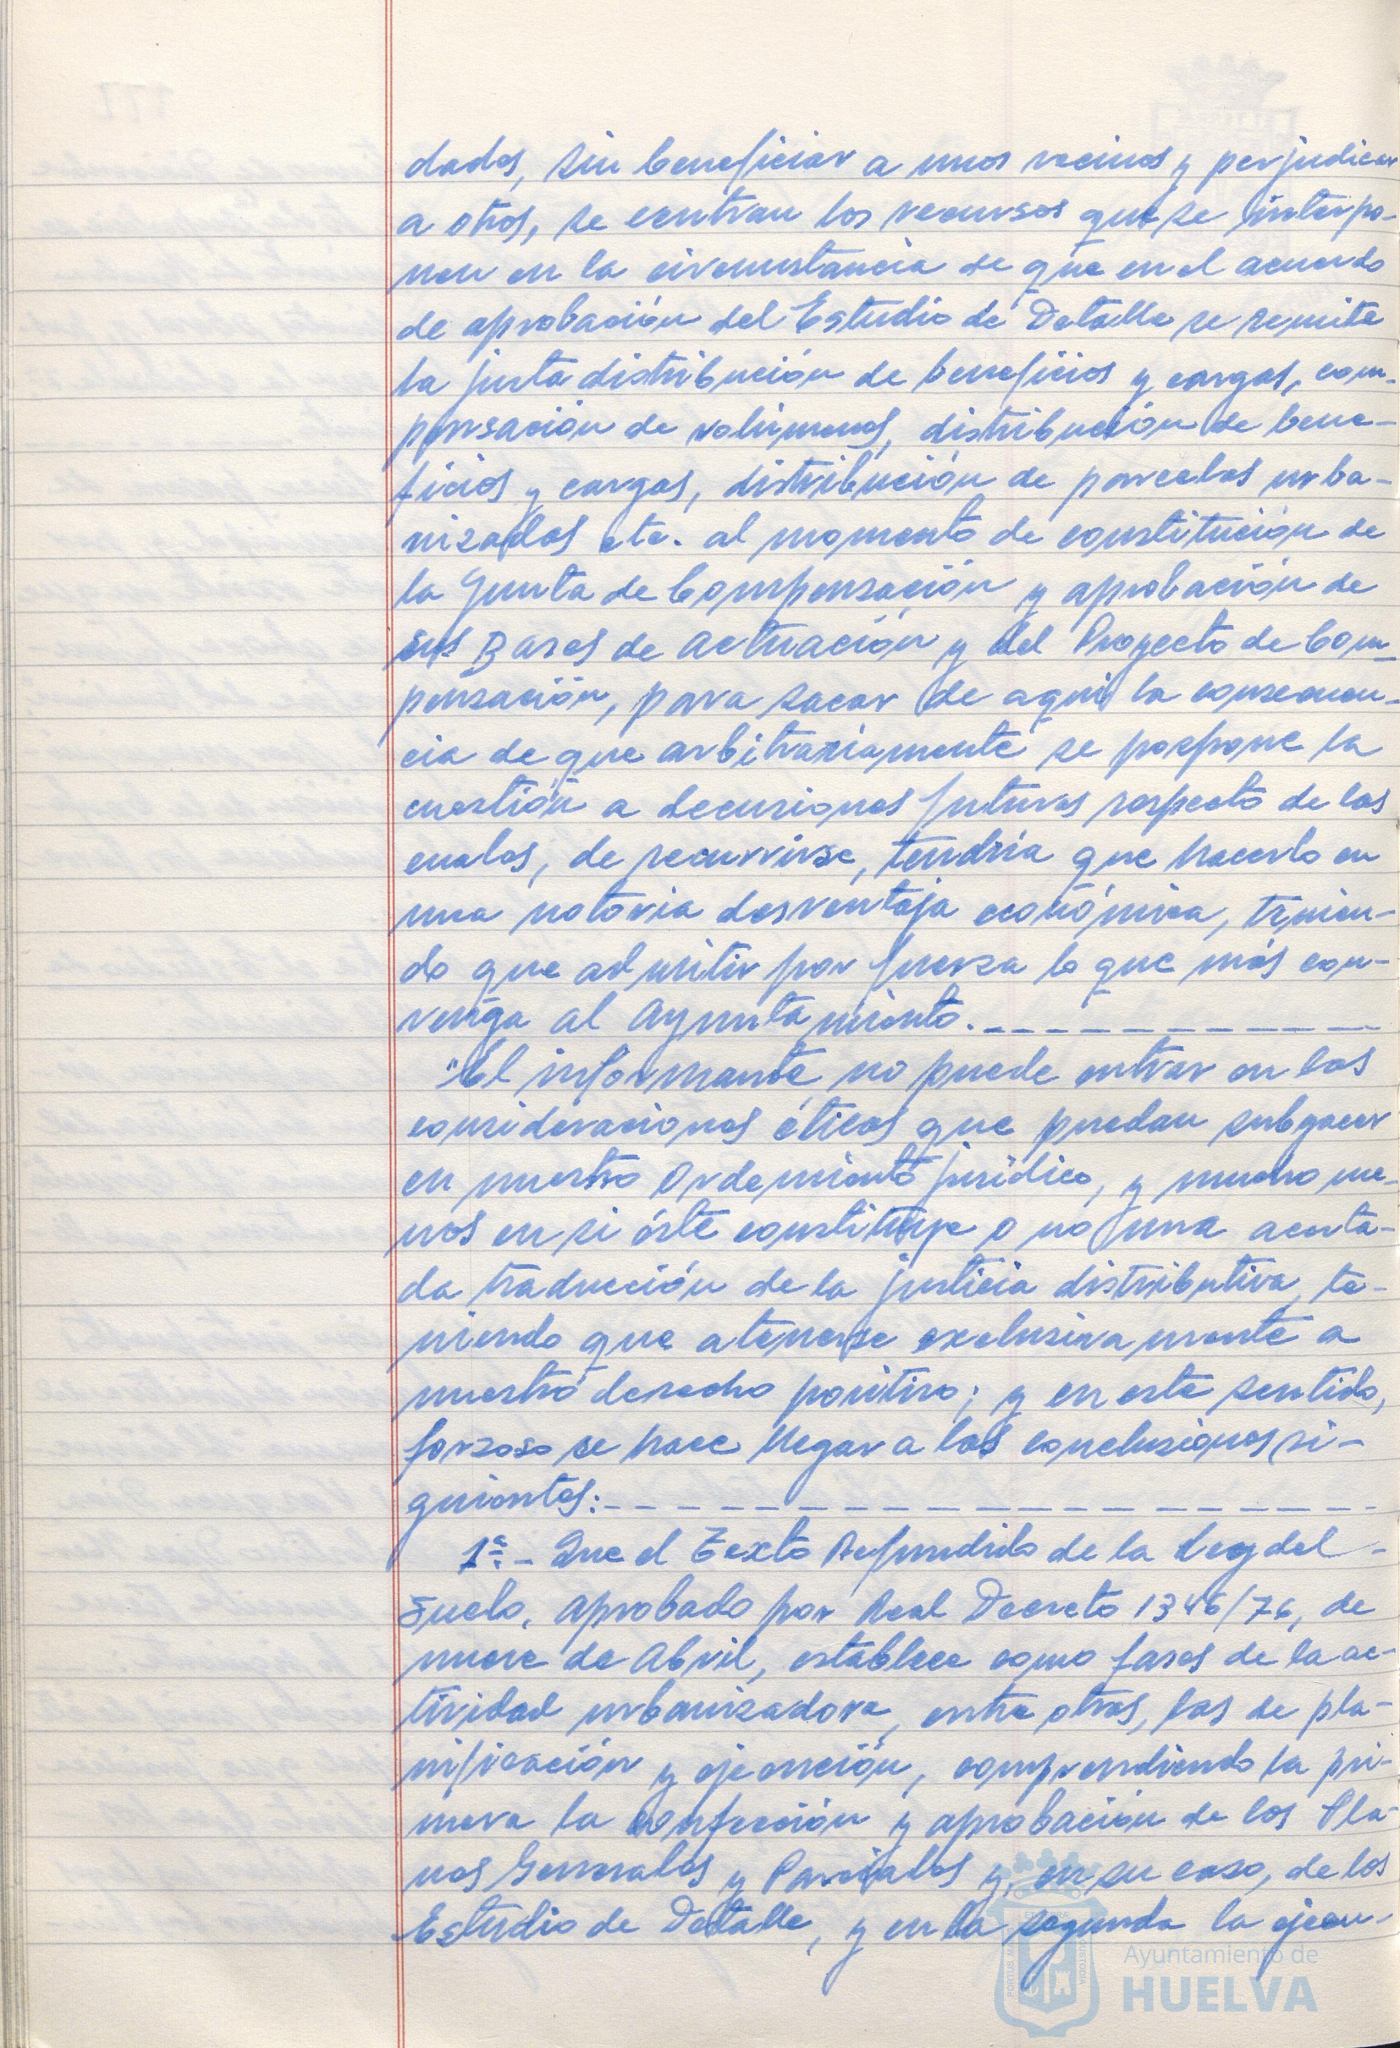 dados, sin beneficiar a unos vecinos y perjudicar
a otros, se centran los recursos que se interpo-
nen en la circunstancia de que en el acuerdo
de aprobación del Estudio de Detalle se remite
la justa distribución de beneficios y cargas, com-
pensación de volúmenes, distribución de bene-
ficios y cargas, distribución de parcelas urba-
nizadas etc. al momento de constitución de
la Junta de Compensación y aprobación de
sus Bases de actuación y del Proyecto de Com-
pensación, para sacar de aqui la consecuen-
cia de que arbitrariamente se pospone la
cuestión a decisiones futuras respecto de las
cuales, de recurrirse, tendría que hacerlo en
una notoria desventaja económica, tenien-
do que admitir por fuerza lo que más con-
venga al Ayuntamiento.
"El informante no puede entrar en las
consideraciones éticas que puedan subyacer
en nuestro Ordemiento jurídico, y mucho me-
nos en si éste constituye o no una acerta-
da traducción de la justicia distributiva, te-
niendo que atenerse exclusivamente a
nuestro derecho positivo; y en este sentido,
forzoso se hace llegar a las conclusiones si-
guientes:
1ª.- Que el Texto Refundido de la Ley del
Suelo, aprobado por Real Decreto 1346/76, de
nueve de Abril, establece como fases de la ac-
tividad urbanizadora, entre otras, las de pla-
nificación y ejecución, comprendiendo la pri-
mera la confección y aprobación de los Pla-
nes Generales y Parciales y, en su caso, de los
Estudio de Detalle, y en la segunda la ejecu-
Ayuntamiento de
HUELVA